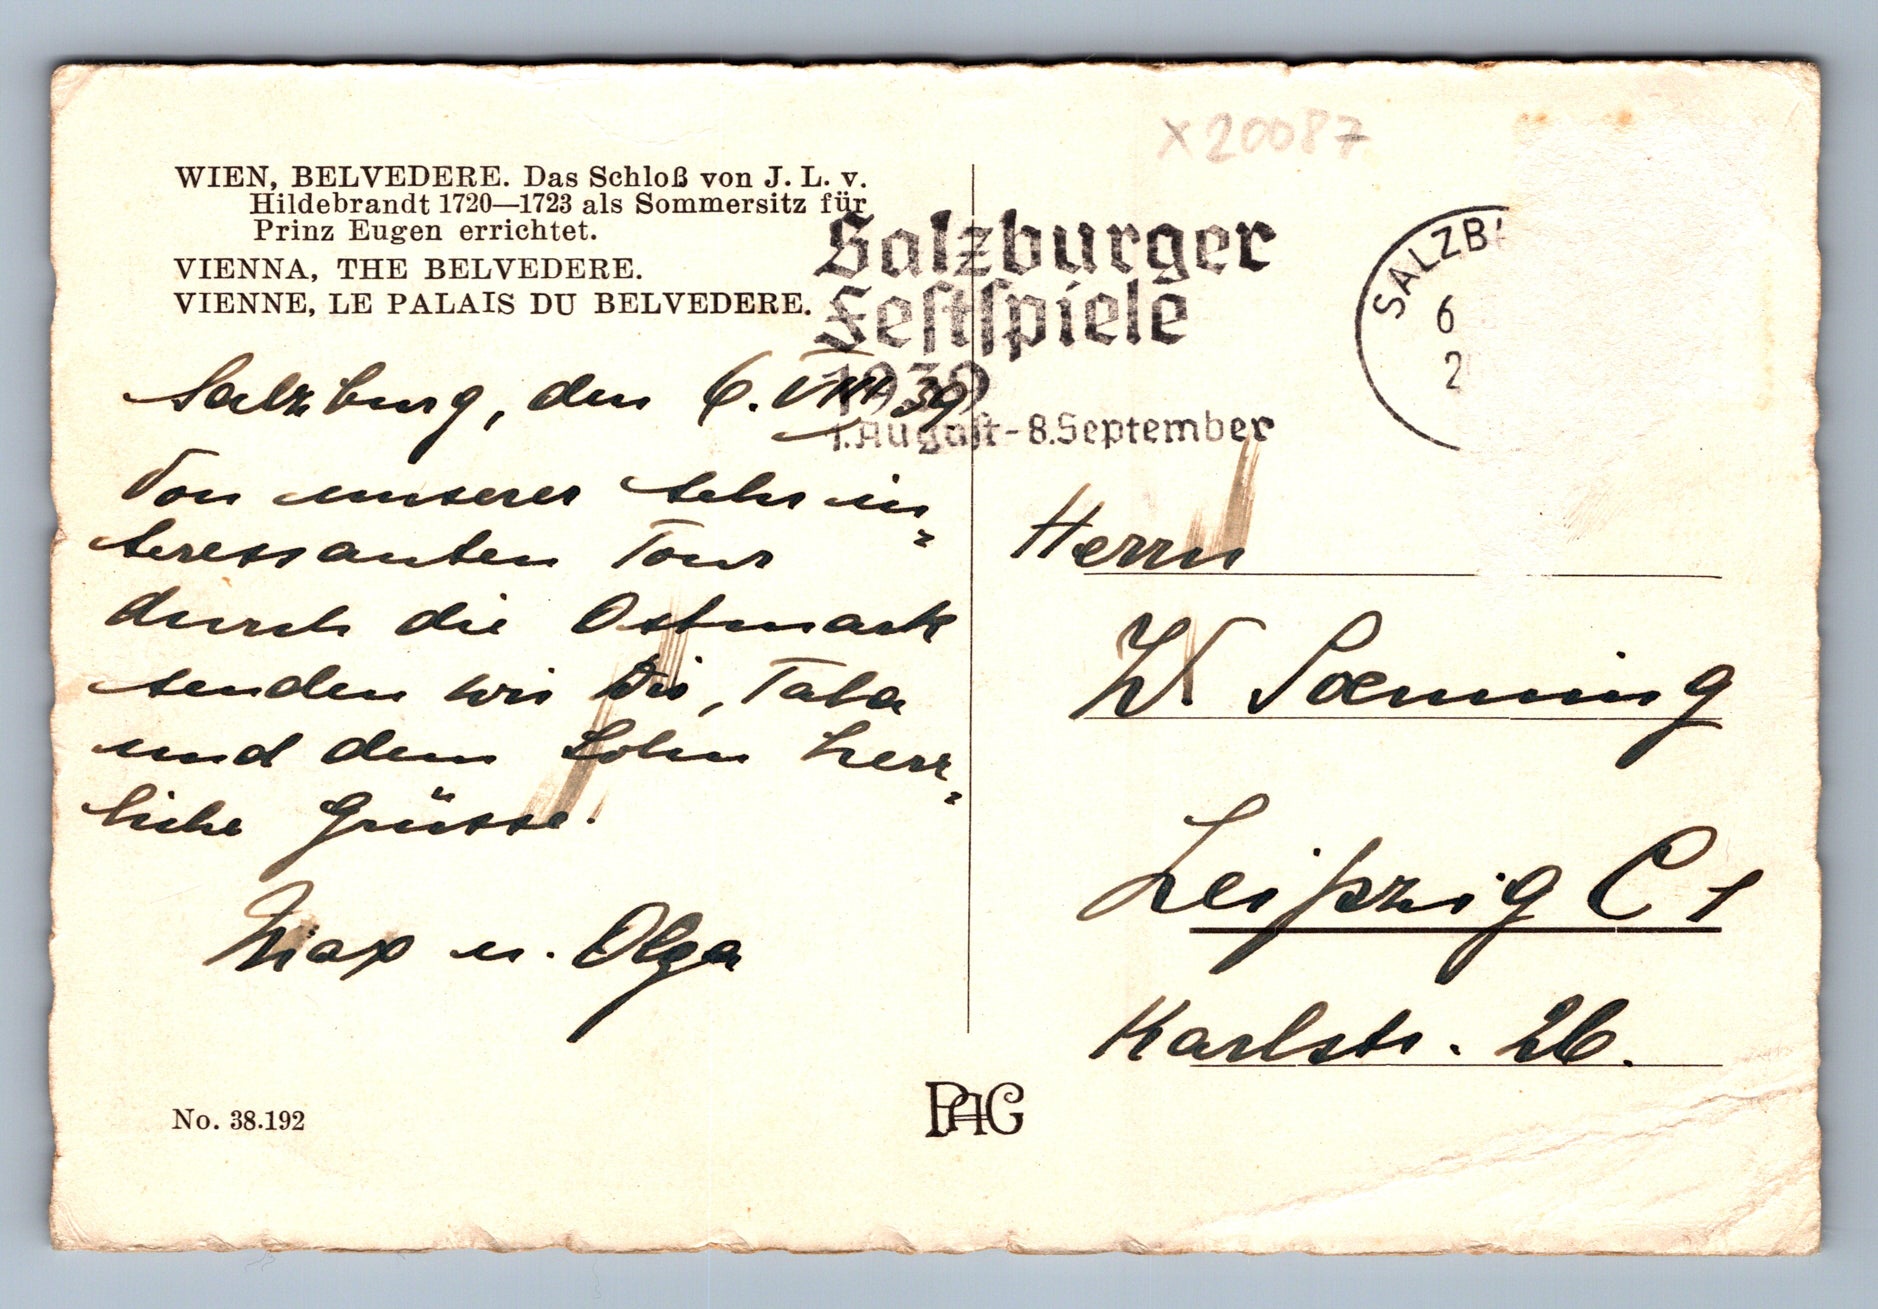 X20087
WIEN, BELVEDERE. Das Schloß von J. L. v.
Hildebrandt 1720—1723 als Sommersitz für
Prinz Eugen errichtet.
VIENNA, THE BELVEDERE.
VIENNE, LE PALAIS DU BELVEDERE.
Salzburger
Festspiele
1939
1.August-8.September
SALZB
6
2
Salzburg, den 6. VIII 39
Von unserer sehr in=
teressanten Tour
durch die Ostmark
senden wir Dir,
und dem herz=
liche Grüsse.
Max u. Olga
Herrn
W. Soenning
Leipzig C 1
Karlstr. 26.
No. 38.192
PAG